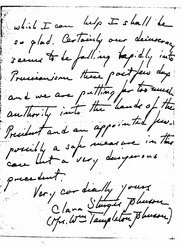 which I can help I shall be
so glad. Certainly our democracy
seems to be falling rapidly into
Prussianism these past few days
and we are putting far too much
authority into the hands of the
President and an appointed few.
possibly a safe measure in this
case but a very dangerous
precedent.
Very cordially yours
Clara Sturges Johnson
(Mrs. Wm Templeton Johnson)